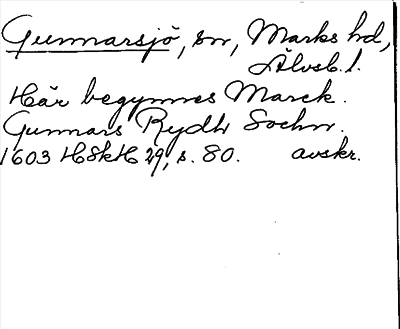 Gunnarsjö, sn, Marks hd,
Älvsb. l.
Här begynnes Marck.
Gunnars Rydh Sochn.
1603 HSkH 29, s. 80. avskr.